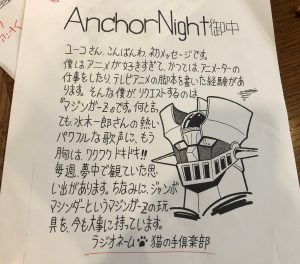 AnchorNight御中
ユーコさん、こんばんわ、初メッセージです。
僕はアニメが好きすぎて、かつてはアニメーターの
仕事をしたり、テレビアニメの脚本を書いた経験があ
ります。そんな僕が、リクエストするのは
『マジンガーZ』です。何と言っ
ても、水木一郎さんの熱い
パワフルな歌声に、もう
胸は、ワクワクドキドキ!!
毎週、夢中で観ていた思
い出があります。ちなみに、ジャンボ
マシンダーというマジンガーZの玩
具を、今も大事に持っています。
ラジオネーム 猫の手倶楽部